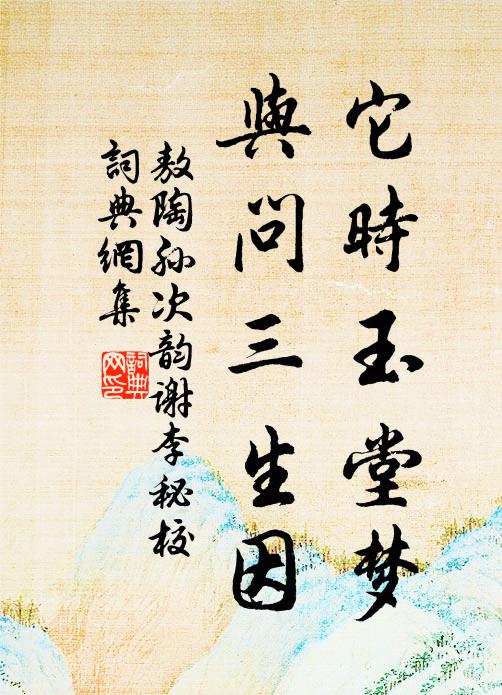 它時玉堂梦
與問三生因
敖陶孙次韵谢李秘校
詞典網集
詞典网印